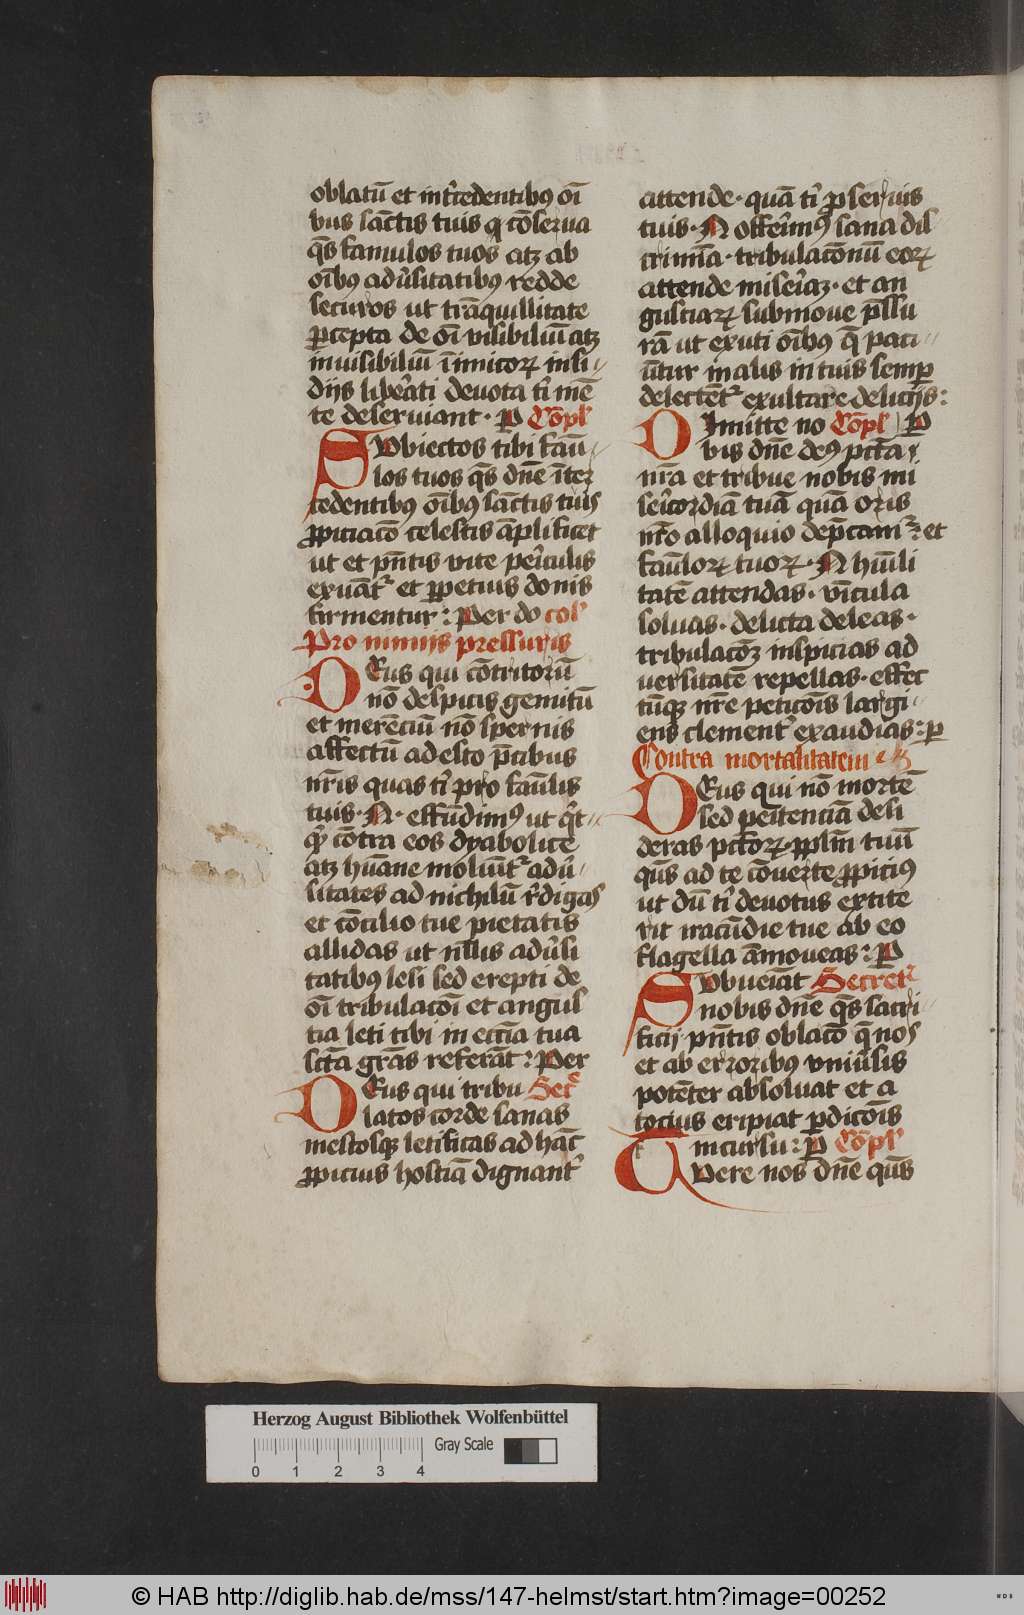 oblatū et int͛cedentibꝰ oī
bus sāctis tuis q̨ cōserua
q̄s famulos tuos atꝫ ab
oībꝰ adūsitatibꝰ redde
securos ut trāquillitate
ꝑcepta de oī visibiliū atꝫ
inuisibiliū īimicoꝝ insi⸗
dijs libe͛ati deuota t̄i mē
te deseruiant · ꝑ Cōpl͛
SVbiectos tibi faū⸗
los tuos q̄s dn̄e īter
cedentibꝰ oībꝰ sāctis tuis
ꝓpiciacō celestis āplificet
ut et pn̄tis vite pe͛iculis
exuāt͛ et ꝑpetuis donis
firmentur : Per do col͛
Pro nimijs pressuris
DEus qui cōtritorū
nō despicis gemitū
et merēciū nō spernis
affectū adesto p̄cibus
nr̄is quas t̄i pro faūlis
tuis · N · effūdimꝰ ut q͛t⸗
q͛ cōtra eos dyabolice
atꝫ hūane moliūt͛ adū⸗
sitates ad nichilū r͛digas
et cōcilio tue pietatis
allidas ut nll̄is adūsi
tatibꝰ lesi sed erepti de
oī tribulacōī et angus
tia leti tibi in eccīa tua
scta grās referāt : Per
DEus qui tribu Secͤ
latos corde sanas
mestosqꝫ letificas ad hāc
ꝓpicius hostiā dignant͛
attende · quā t̄i ꝓ seruis
tuis · N offe͛imꝰ sana dis
crimīa · tribulacōnū eoꝝ
attende mise͛iaꝫ · et an
gustiaꝝ submoue p̄ssu
rā ut exuti oībꝰ q̄ paci⸗
ūtur malis in tuis semꝑ
delectēt͛ exultare delicijs :
DImitte no Cōpl͛ ꝑ
bis dn̄e deꝰ pctā
nr̄a et tribue nobis mi
se͛icordiā tuā quā oris
nr̄o alloquio dep̄cam͛ : et
faūloꝝ tuoꝝ · N hūīli
tatē attendas · vīcula
soluas · delicta deleas ·
tribulacōꝫ inspicias ad
uersitatē repellas · effec
tūqꝫ nr̄e peticōis largi⸗
ens clement͛ exaudias : p̱
Contra mortalitatem
DEus qui nō mortē
sed peītenciā desi
deras pctoꝝ · pplm̄ tuū
qūs ad te cōuerte ꝓpiciꝰ
ut dū t̄i deuotus extite
rit iracūdie tue ab eo
flagella āmoueas : ꝑ
SVbueīat Secret͛
nobis dn̄e q̄s sacri⸗
ficij pn̄tis oblacō q̄ nos
et ab erroribꝰ vniūsis
potēter absoluat et a
tocius eripiat ꝑdicōīs
incursu : ꝑ Cōpl͛
TVere nos dn̄e qūs
Herzog August Bibliothek Wolfenbüttel
Gray Scale
0 1 2 3 4
© HAB http://diglib.hab.de/mss/147-helmst/start.htm?image=00252